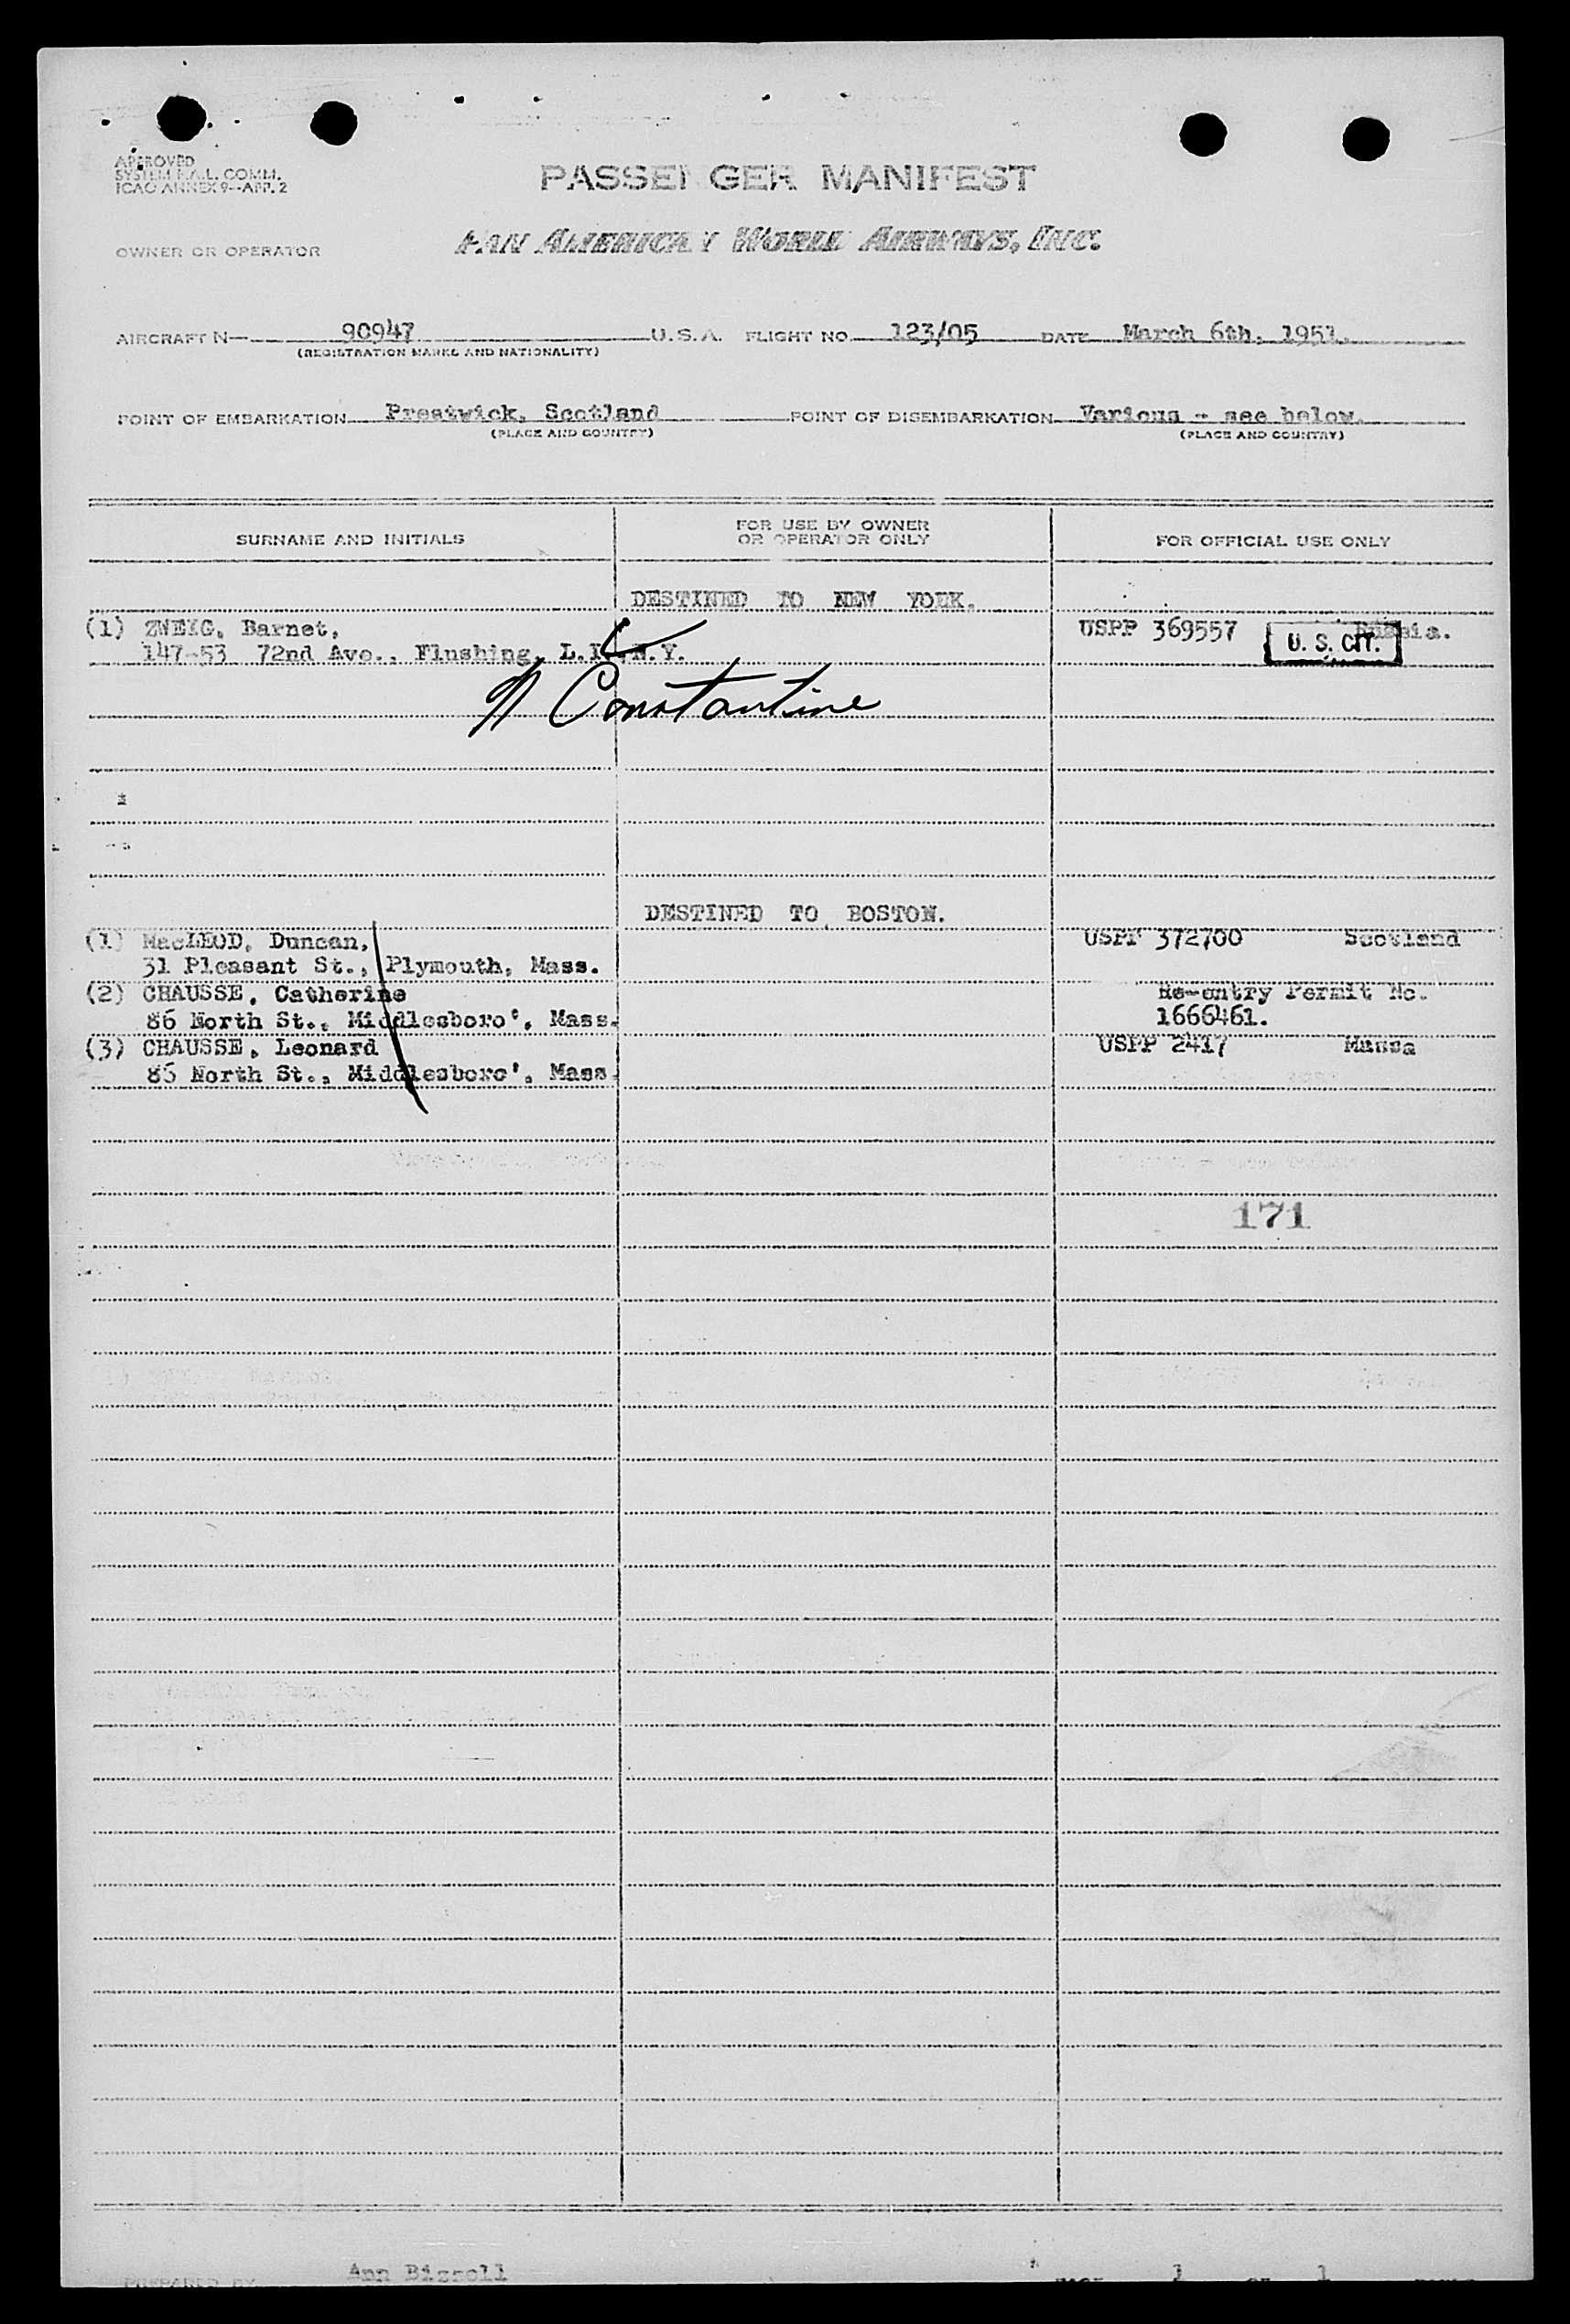 APPROVED
SYSTEM F.A.L. COMM.
ICAO ANNEX 9--APP. 2
PASSENGER MANIFEST
OWNER OR OPERATOR PAN AMERICAN WORLD AIRWAYS, INC.
AIRCRAFT N— 90947 U.S.A. FLIGHT NO. 123/05 DATE March 6th, 1951.
(REGISTRATION MARKS AND NATIONALITY)
POINT OF EMBARKATION Prestwick, Scotland POINT OF DISEMBARKATION Various - see below.
(PLACE AND COUNTRY) (PLACE AND COUNTRY)
SURNAME AND INITIALS FOR USE BY OWNER OR OPERATOR ONLY FOR OFFICIAL USE ONLY
DESTINED TO NEW YORK.
(1) ZWEIG, Barnet, USPP 369557 Russia.
147-53 72nd Ave., Flushing, L.I. N.Y. U. S. CIT.
Constantine
DESTINED TO BOSTON.
(1) MacLEOD, Duncan, USPP 372700 Scotland
31 Pleasant St., Plymouth, Mass.
(2) CHAUSSE, Catherine Re-entry Permit No.
86 North St., Middlesboro', Mass. 1666461.
(3) CHAUSSE, Leonard USPP 2417 Massa
86 North St., Middlesboro', Mass.
171
PREPARED BY Ann Birrell 1 1